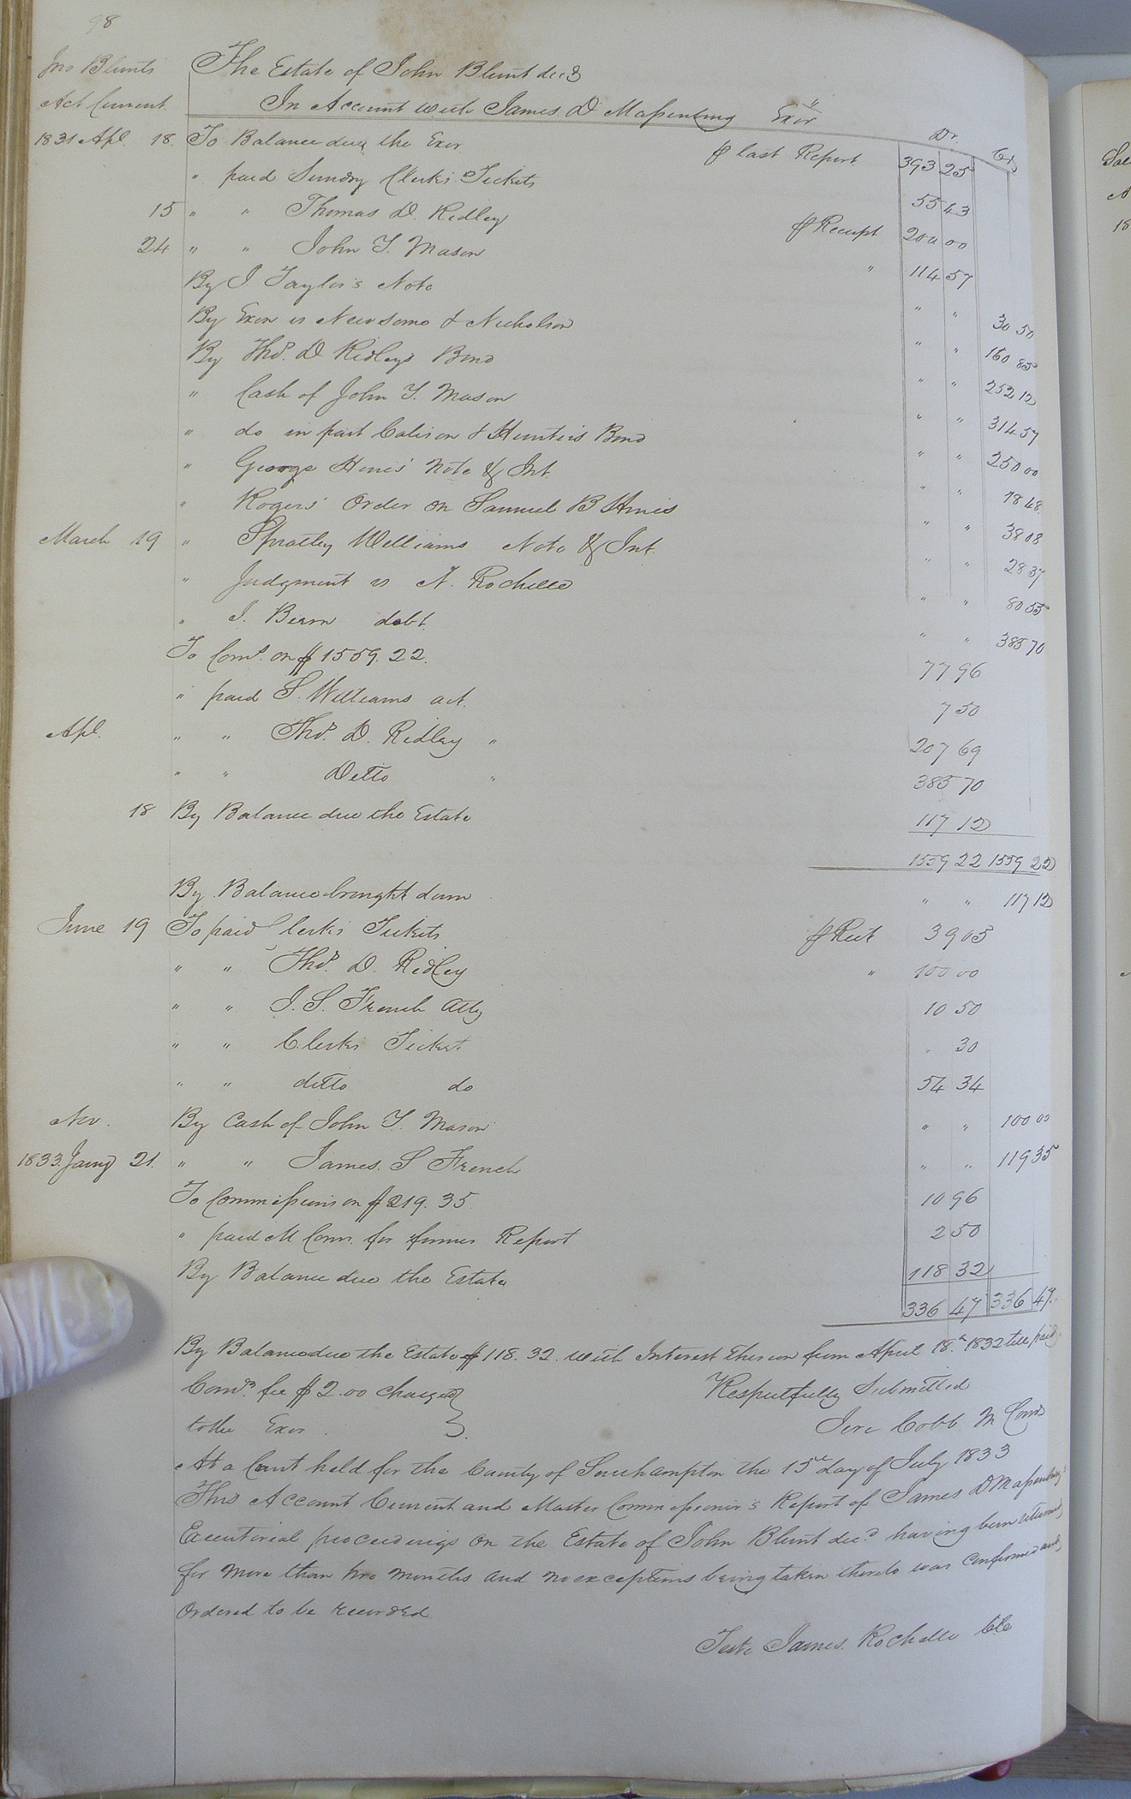 98
Jno Blunts The Estate of John Blunt decd
Act Current In Account with James D Massenburg Exor
Dr. Cr.
1831 Apl 18. To Balance due the Exor ⅌ last Report 393 25
" paid Sundry Clerks Tickets 55 43
15 " " Thomas D. Ridley ⅌ Receipt 200 00
24 " " John Y. Mason " 114 57
By J Taylor's Note " " 30 50
By Exon vs Newsome & Nicholson " " 160 85
By Thos. D Ridleys Bond " " 252 12
" Cash of John Y. Mason " " 314 57
" do in part & Hunter's Bond " " 250 00
" George Hines' Note & Int. " " 18 48
" Rogers' Order on Samuel B Hines " " 38 08
March 19 " Spratley Williams Note & Int " " 28 37
" Judgment vs A. Rochelle " " 80 55
" debt. " " 385 70
To Coms. on $1559.22. 77 96
" paid S. Williams act. 7 50
Apl. " " Thos. D. Ridley " 207 69
" " Ditto " 385 70
18 By Balance due the Estate 117 12
1559 22 1559 22
By Balance brought down " " 117 12
June 19 To paid Clerks Tickets ⅌ Rect 39 05
" " Thos. D. Ridley " 100 00
" " J. S. French Atty 10 50
" " Clerks Ticket " 30
" " ditto do 54 34
Nov. By Cash of John Y. Mason " " 100 00
1833. Jany 21. " " James. S French " " 119 35
To Commissions on $219.35 10 96
" paid M Comr. for former Report 2 50
By Balance due the Estate 118 32
336 47 336 47.
By Balance due the Estate $118.32. with Interest thereon from April 18th 1832 till paid
Comrs. fee $2.00 charged Respectfully Submitted
to the Exor. Jere Cobb M Comr
At a Court held for the County of Southampton the 15th day of July 1833
This Account Current and Master Commissioner's Report of James D Massenburg's
Executorial proceedings on the Estate of John Blunt decd. having been returned
for more than two months and no exceptions being taken thereto was confirmed and
Ordered to be recorded
Teste James. Rochelle Clk